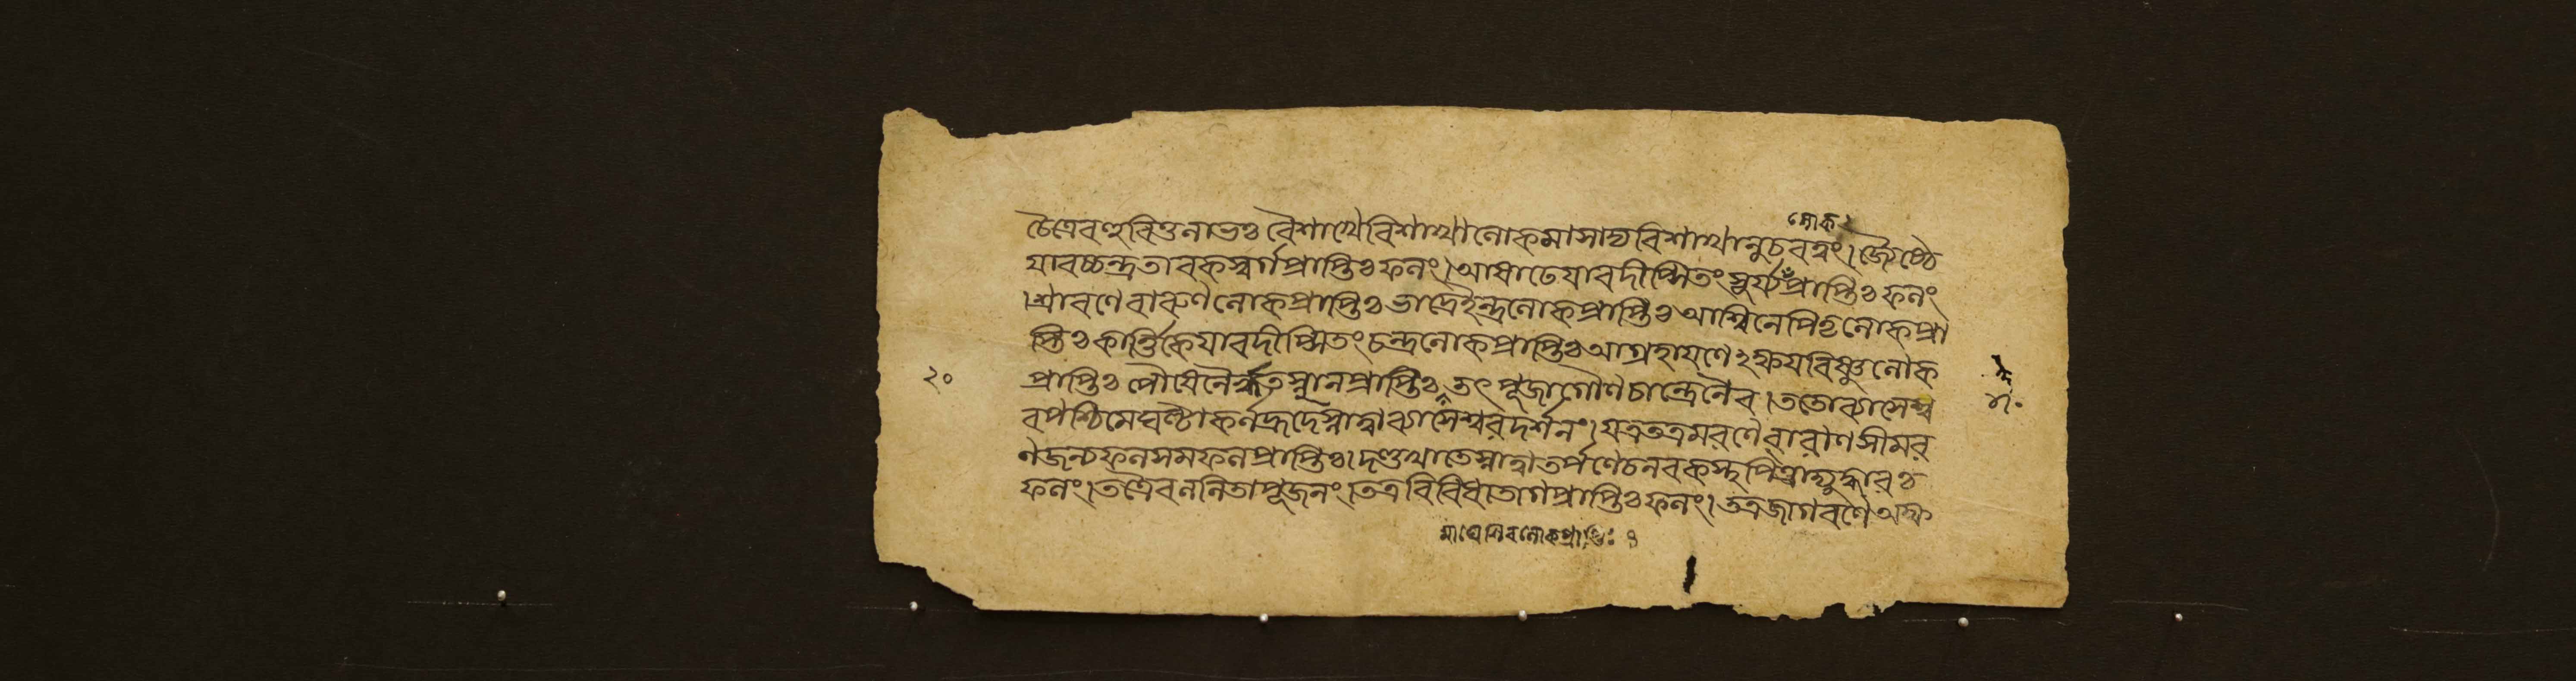 লোক২
চৈত্রেবহুবিত্তলাভঃ বৈশাখেবিশাখালোকমাসাদ্যবিশাখানুচরত্বং। জ্যৈষ্ঠে
যাবচ্চন্দ্রতাবকস্বর্গপ্রাপ্তিঃ ফলং। আষাঢেযাবদীপ্সিতং সুর্য্যপ্রাপ্তিঃ ফলং
। শ্রাবণে বারুণলোকপ্রাপ্তিঃ ভাদ্রেইন্দ্রলোকপ্রাপ্তিঃ আশ্বিনেপিতৃলোকপ্রা
প্তিঃ কার্ত্তিকেযাবদীপ্সিতং চন্দ্রলোকপ্রাপ্তিঃ আগ্রহাযণেঽক্ষযবিষ্ণুলোক
২০ প্রাপ্তিঃ পৌষেনৈঋতস্থানপ্রাপ্তিঃ তৎ পূজাগৌণচান্দ্রেনৈব। ততোব্যাসেশ্ব
রপশ্চিমেঘণ্টাকর্ণহ্রদেস্নাত্বাব্যাসেশ্বরদর্শনং। যত্রতত্রমরণেবারাণসীমর
ণজন্যফলসমফলপ্রাপ্তিঃ। দণ্ডখাতেস্নাত্বাতর্পণেচনরকস্থপিত্রাদ্যুদ্ধারঃ
ফলং। তত্রৈবললিতাপূজনং। তত্রবিবিধভোগপ্রাপ্তিঃ ফলং। তত্রজাগরণে অক্ষ
মাঘেশিবলোকপ্রাপ্তিঃ ৪